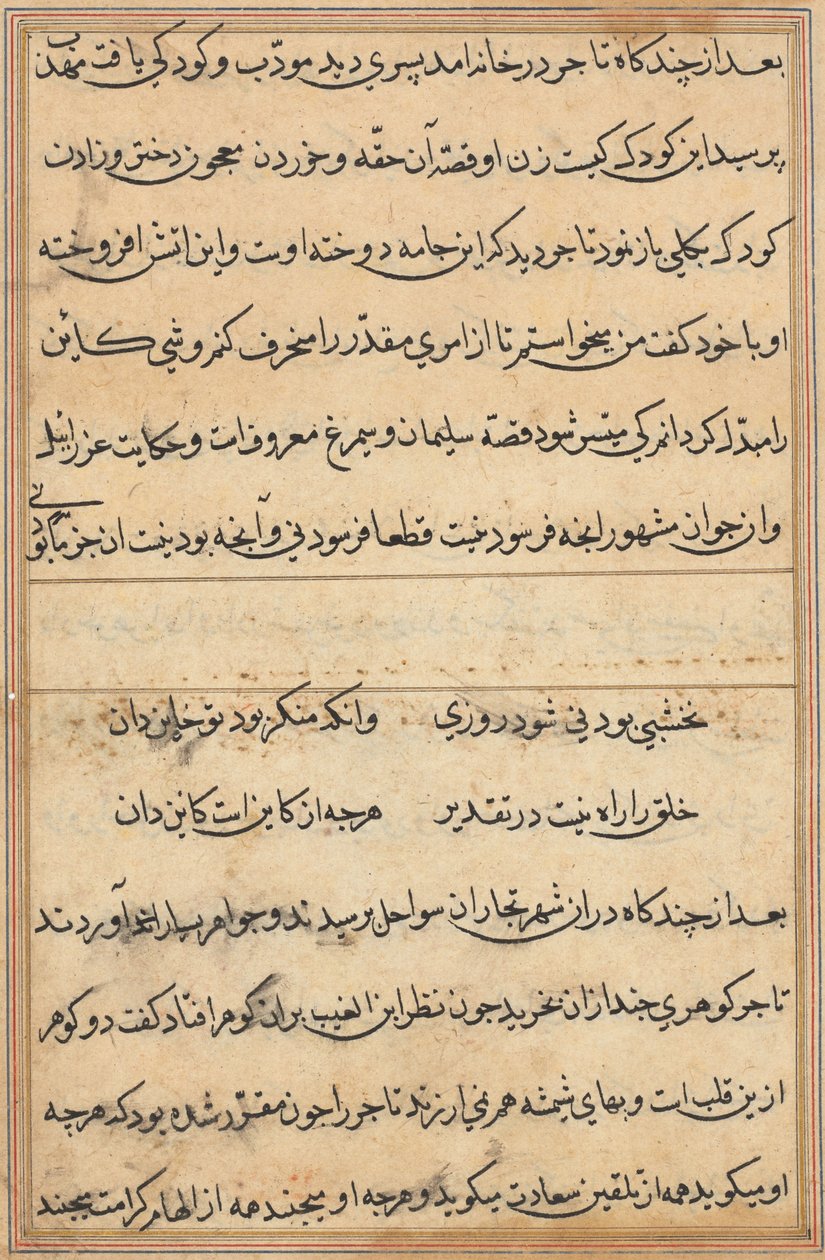 بعد از چند کاه تاجر در خانه امد پسری دید مودّب و کودکی یافت مهذب
پرسید این کودک کیست زن او قصّه آن حقّه و خوردن معجون دختر و زادن
کودک بکلی باز نمود تاجر دید که این جامه دوخته اوست و این اتش افروخته
او با خود کفت من میخواستم تا از امری مقدّر را منحرف کنم و شی کائن
را مبدّل کردانم کی میّسر شود قصّه سلیمان و سیمرغ معروف است و حکایت عزرائیل
و ان جوان مشهور انجه فرسود نیست قطعا فرسودنی و آنجه بود نیست ان جز
نخشبی بودنی شود روزی وانکه منکر بود تو خاین دان
خلق را راه نیست در تقدیر هرجه از کاین است کائن دان
بعد از چند کاه در ان شهر تجاران سواحل برسیدند و جواهر بسیار آوردند
تاجر کوهری جند ازان بخرید جون نظر ابن الغیب بران کوهر افتاد کفت دو کوهر
ازین قلب است و بهای شیشه هم نمی ارزند تاجر را جون مقرّر شده بود که هرچه
او میکوید همه از تلقین سعادت میکوید و هرجه او میجنند همه از الهام کرامت میجنند